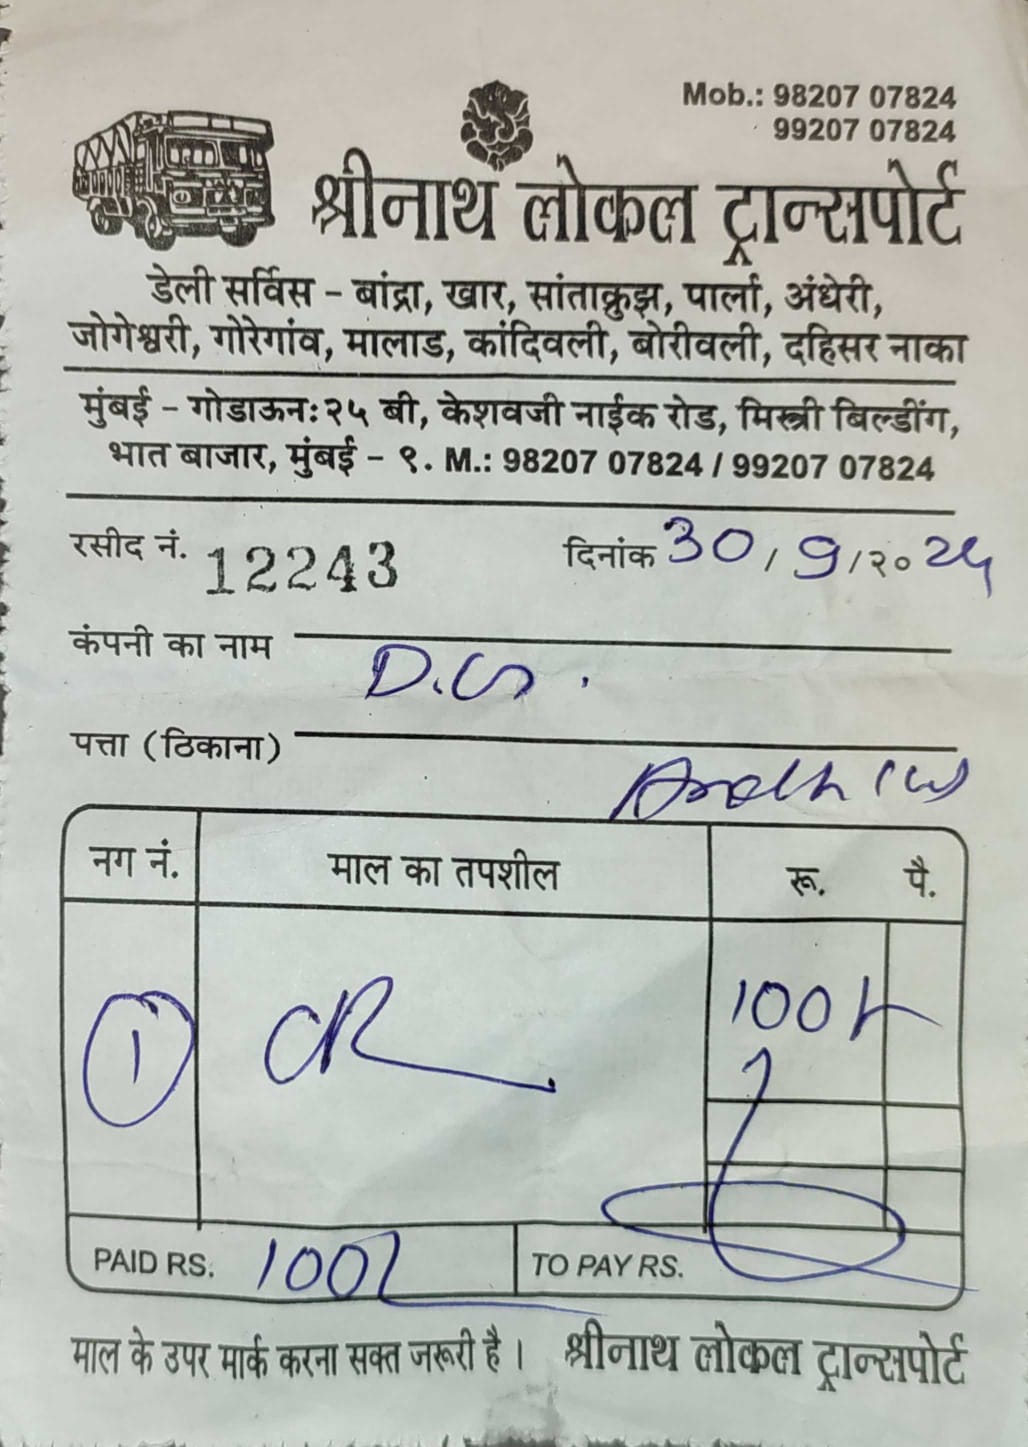 Mob.: 98207 07824
99207 07824
श्रीनाथ लोकल ट्रान्सपोर्ट
डेली सर्विस - बांद्रा, खार, सांताक्रुझ, पार्ला, अंधेरी,
जोगेश्वरी, गोरेगांव, मालाड, कांदिवली, बोरीवली, दहिसर नाका
मुंबई - गोडाऊन: २५ बी, केशवजी नाईक रोड, मिस्त्री बिल्डींग,
भात बाजार, मुंबई - ९. M.: 98207 07824 / 99207 07824
रसीद नं. 12243 दिनांक 30/9/२० 24
कंपनी का नाम
पत्ता (ठिकाना)
नग नं. माल का तपशील रू. पै.
1 100/-
PAID RS. 100/- TO PAY RS.
माल के उपर मार्क करना सक्त जरूरी है। श्रीनाथ लोकल ट्रान्सपोर्ट